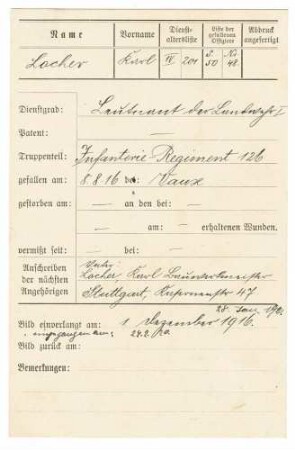 Name Vorname Dienst-altersliste Liste der gefallenen Offiziere Abdruck angefertigt
Locher Karl IV 201 S. 50 No 48
Dienstgrad: Leutnant der Landwehr I
Patent: —
Truppenteil: Infanterie-Regiment 126
gefallen am: 8.8.16 bei: Vaux
gestorben am: — an den bei: —
— am: — erhaltenen Wunden.
vermißt seit: — bei: —
Anschreiben der nächsten Angehörigen
Vater:
Locher Karl Bauwerkmeister
Stuttgart, 47
28. Jan. 192
Bild einverlangt am: 1 Dezember 1916.
" eingegangen am: 24.2.20.
Bild zurück am:
Bemerkungen: